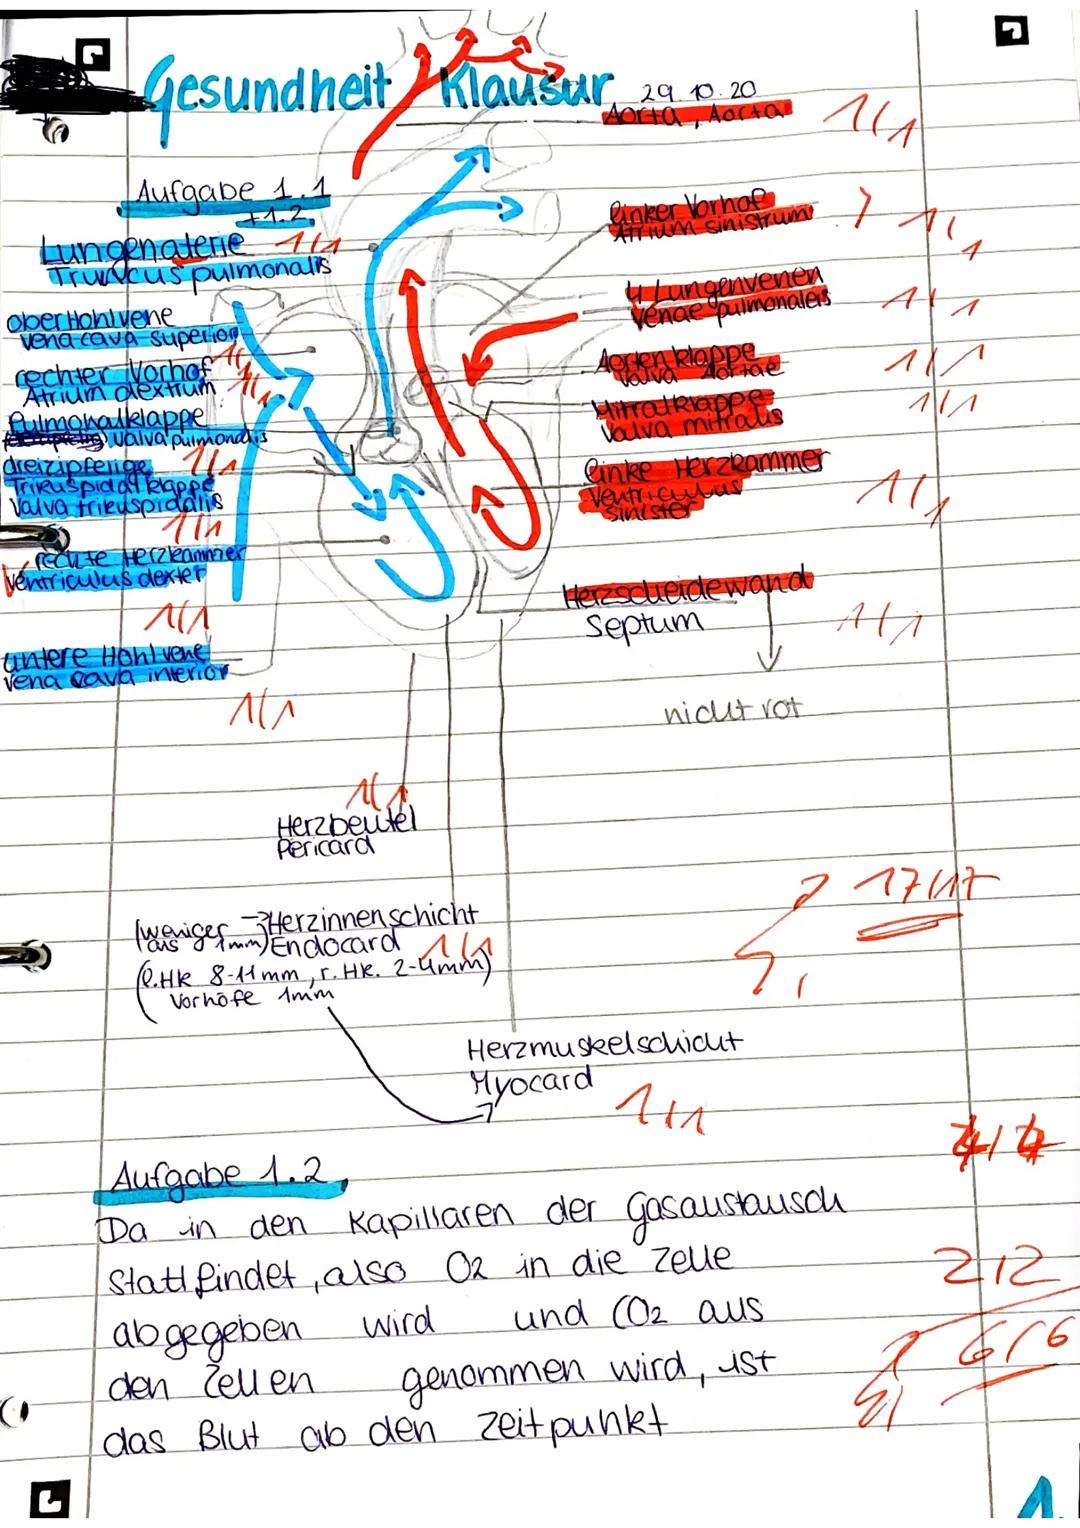 Gesundheit Klausur 29.10.20
Aorta, Aorta 1/1
Aufgabe 1.1
+1.2
Lungenaterie 1/1
Truncus pulmonalis
ober Hohlvene
vena cava superior
rechter Vorhof
Atrium dextrium 1/1
Pulmonalklappe
valva pulmonalis
dreizipfelige 1/1
Trikuspidalklappe
Valva trikuspidalis
1/1
rechte Herzkammer
Ventriculus dexter
1/1
untere Hohlvene
vena cava inferior
1/1
linker Vorhof
Atrium sinistrum 1/1
4 Lungenvenen
Venae pulmonaleis 1/1
Aortenklappe
Valva Aortae 1/1
Mitralklappe
Valva mitralis 1/1
linke Herzkammer
Ventriculus
sinister 1/1
Herzscheidewand
Septum 1/1
nicht rot
1/1
Herzbeutel
Pericard
17/17
(weniger → Herzinnenschicht
als 1mm) Endocard 1/1
(l.HK 8-11mm, r. HK. 2-4mm)
Vorhöfe 1mm
Herzmuskelschicht
Myocard
1/1
4/4
Aufgabe 1.2
Da in den Kapillaren der Gasaustausch
stattfindet, also O2 in die Zelle 2/2
abgegeben wird und CO2 aus
den Zellen genommen wird, ist 6/6
das Blut ab den Zeitpunkt
1.